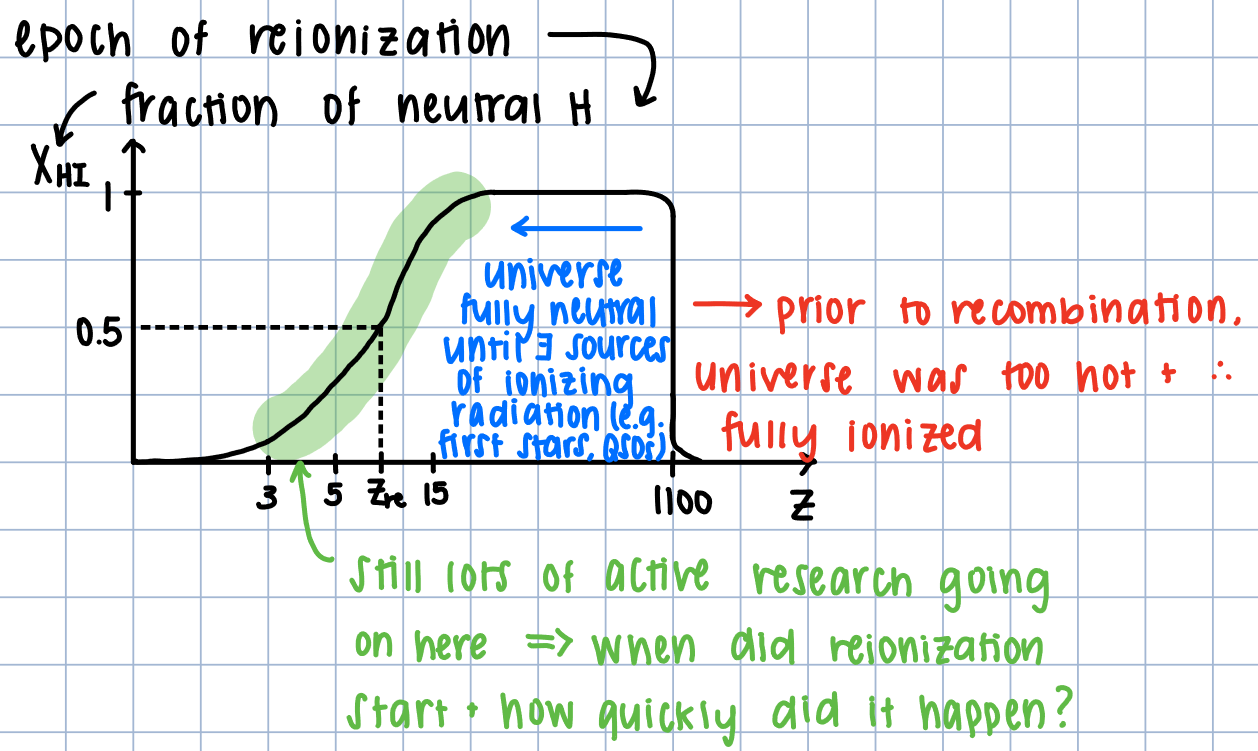 epoch of reionization
fraction of neutral H
X_HI
1
0.5
universe
fully neutral
until ∃ sources
of ionizing
radiation (e.g.
first stars, QSOs)
prior to recombination,
universe was too hot + ∴
fully ionized
3 5 z_re 15 1100 z
still lots of active research going
on here => when did reionization
start + how quickly did it happen?